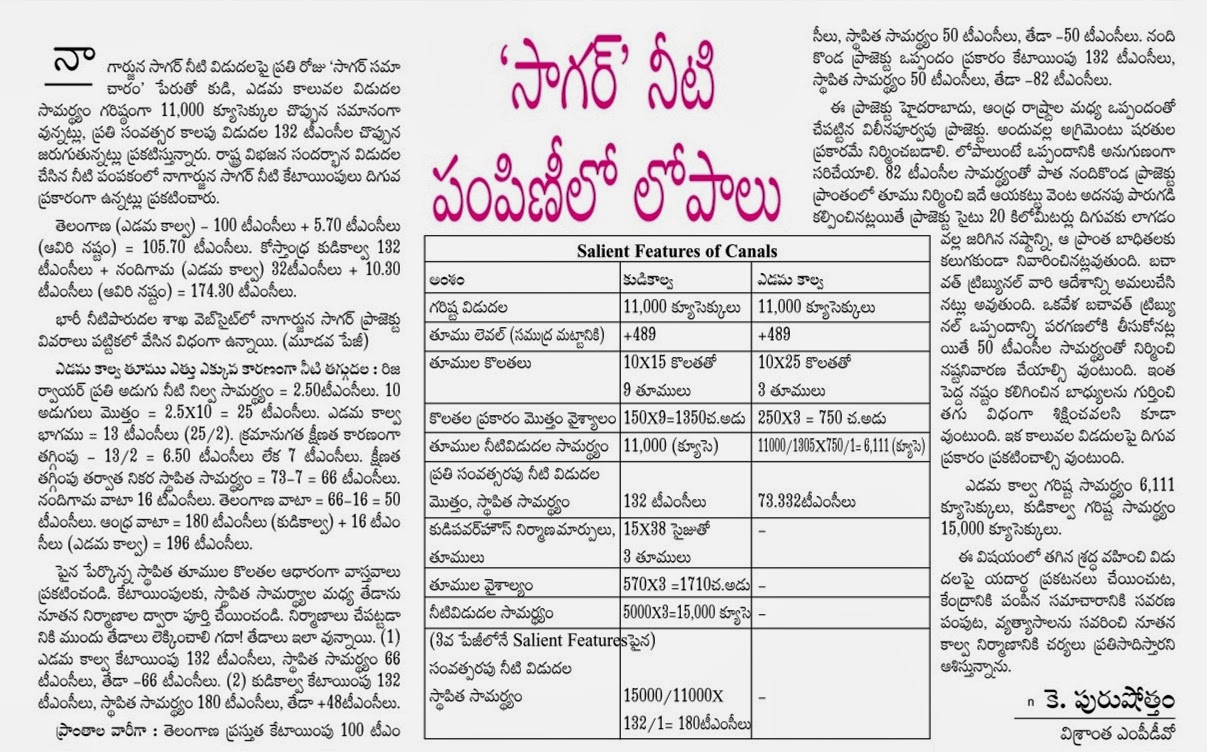 'సాగర్' నీటి
పంపిణీలో లోపాలు
నాగార్జున సాగర్ నీటి విడుదలపై ప్రతి రోజు 'సాగర్ సమా
చారం' పేరుతో కుడి, ఎడమ కాలువల విడుదల
సామర్థ్యం గరిష్ఠంగా 11,000 క్యూసెక్కుల చొప్పున సమానంగా
వున్నట్లు, ప్రతి సంవత్సర కాలపు విడుదల 132 టీఎంసీల చొప్పున
జరుగుతున్నట్లు ప్రకటిస్తున్నారు. రాష్ట్ర విభజన సందర్భాన విడుదల
చేసిన నీటి పంపకంలో నాగార్జున సాగర్ నీటి కేటాయింపులు దిగువ
ప్రకారంగా ఉన్నట్లు ప్రకటించారు.
తెలంగాణ (ఎడమ కాల్వ) – 100 టీఎంసీలు + 5.70 టీఎంసీలు
(ఆవిరి నష్టం) = 105.70 టీఎంసీలు. కోస్తాంధ్ర కుడికాల్వ 132
టీఎంసీలు + నందిగామ (ఎడమ కాల్వ) 32టీఎంసీలు + 10.30
టీఎంసీలు (ఆవిరి నష్టం) = 174.30 టీఎంసీలు.
భారీ నీటిపారుదల శాఖ వెబ్‌సైట్‌లో నాగార్జున సాగర్ ప్రాజెక్టు
వివరాలు పట్టికలో వేసిన విధంగా ఉన్నాయి. (మూడవ పేజీ)
ఎడమ కాల్వ తూము ఎత్తు ఎక్కువ కారణంగా నీటి తగ్గుదల : రిజ
ర్వాయర్ ప్రతి అడుగు నీటి నిల్వ సామర్థ్యం = 2.50టీఎంసీలు. 10
అడుగులు మొత్తం = 2.5X10 = 25 టీఎంసీలు. ఎడమ కాల్వ
భాగము = 13 టీఎంసీలు (25/2). క్రమానుగత క్షీణత కారణంగా
తగ్గింపు – 13/2 = 6.50 టీఎంసీలు లేక 7 టీఎంసీలు. క్షీణత
తగ్గింపు తర్వాత నికర స్థాపిత సామర్థ్యం = 73–7 = 66 టీఎంసీలు.
నందిగామ వాటా 16 టీఎంసీలు. తెలంగాణ వాటా = 66–16 = 50
టీఎంసీలు. ఆంధ్ర వాటా = 180 టీఎంసీలు (కుడికాల్వ) + 16 టీఎం
సీలు (ఎడమ కాల్వ) = 196 టీఎంసీలు.
పైన పేర్కొన్న స్థాపిత తూముల కొలతల ఆధారంగా వాస్తవాలు
ప్రకటించండి. కేటాయింపులకు, స్థాపిత సామర్థ్యాల మధ్య తేడాను
నూతన నిర్మాణాల ద్వారా పూర్తి చేయించండి. నిర్మాణాలు చేపట్టడా
నికి ముందు తేడాలు లెక్కించాలి గదా! తేడాలు ఇలా వున్నాయి. (1)
ఎడమ కాల్వ కేటాయింపు 132 టీఎంసీలు, స్థాపిత సామర్థ్యం 66
టీఎంసీలు, తేడా –66 టీఎంసీలు. (2) కుడికాల్వ కేటాయింపు 132
టీఎంసీలు, స్థాపిత సామర్థ్యం 180 టీఎంసీలు, తేడా +48టీఎంసీలు.
ప్రాంతాల వారీగా : తెలంగాణ ప్రస్తుత కేటాయింపు 100 టీఎం
Salient Features of Canals
అంశం కుడికాల్వ ఎడమ కాల్వ
గరిష్ట విడుదల 11,000 క్యూసెక్కులు 11,000 క్యూసెక్కులు
తూము లెవల్ (సముద్ర మట్టానికి) +489 +489
తూముల కొలతలు 10X15 కొలతతో 10X25 కొలతతో
9 తూములు 3 తూములు
కొలతల ప్రకారం మొత్తం వైశ్యాలం 150X9=1350చ.అడు 250X3 = 750 చ.అడు
తూముల నీటివిడుదల సామర్థ్యం 11,000 (క్యూసె) 11000/1305X750/1= 6,111 (క్యూసె)
ప్రతి సంవత్సరపు నీటి విడుదల
మొత్తం, స్థాపిత సామర్థ్యం 132 టీఎంసీలు 73.332టీఎంసీలు
కుడిపవర్‌హౌస్ నిర్మాణమార్పులు, 15X38 సైజుతో –
తూములు 3 తూములు
తూముల వైశాల్యం 570X3 =1710చ.అడు –
నీటివిడుదల సామర్థ్యం 5000X3=15,000 క్యూసె –
(3వ పేజీలోనే Salient Featuresపైన)
సంవత్సరపు నీటి విడుదల
స్థాపిత సామర్థ్యం 15000/11000X –
132/1= 180టీఎంసీలు
సీలు, స్థాపిత సామర్థ్యం 50 టీఎంసీలు, తేడా –50 టీఎంసీలు. నంది
కొండ ప్రాజెక్టు ఒప్పందం ప్రకారం కేటాయింపు 132 టీఎంసీలు,
స్థాపిత సామర్థ్యం 50 టీఎంసీలు, తేడా –82 టీఎంసీలు.
ఈ ప్రాజెక్టు హైదరాబాదు, ఆంధ్ర రాష్ట్రాల మధ్య ఒప్పందంతో
చేపట్టిన విలీనపూర్వపు ప్రాజెక్టు. అందువల్ల అగ్రిమెంటు షరతుల
ప్రకారమే నిర్మించబడాలి. లోపాలుంటే ఒప్పందానికి అనుగుణంగా
సరిచేయాలి. 82 టీఎంసీల సామర్థ్యంతో పాత నందికొండ ప్రాజెక్టు
ప్రాంతంలో తూము నిర్మించి ఇదే ఆయకట్టు వెంట అదనపు పారుగడి
కల్పించినట్లయితే ప్రాజెక్టు సైటు 20 కిలోమీటర్లు దిగువకు లాగడం
వల్ల జరిగిన నష్టాన్ని, ఆ ప్రాంత బాధితలకు
కలుగకుండా నివారించినట్లవుతుంది. బచా
వత్ ట్రిబ్యునల్ వారి ఆదేశాన్ని అమలుచేసి
నట్లు అవుతుంది. ఒకవేళ బచావత్ ట్రిబ్యు
నల్ ఒప్పందాన్ని పరగణలోకి తీసుకోనట్ల
యితే 50 టీఎంసీల సామర్థ్యంతో నిర్మించి
నష్టనివారణ చేయాల్సి వుంటుంది. ఇంత
పెద్ద నష్టం కలిగించిన బాధ్యులను గుర్తించి
తగు విధంగా శిక్షించవలసి కూడా
వుంటుంది. ఇక కాలువల విడదలపై దిగువ
ప్రకారం ప్రకటించాల్సి వుంటుంది.
ఎడమ కాల్వ గరిష్ట సామర్థ్యం 6,111
క్యూసెక్కులు, కుడికాల్వ గరిష్ట సామర్థ్యం
15,000 క్యూసెక్కులు.
ఈ విషయంలో తగిన శ్రద్ధ వహించి విడు
దలపై యదార్థ ప్రకటనలు చేయించుట,
కేంద్రానికి పంపిన సమాచారానికి సవరణ
పంపుట, వ్యత్యాసాలను సవరించి నూతన
కాల్వ నిర్మాణానికి చర్యలు ప్రతిసాదిస్తారని
ఆశిస్తున్నాను.
n కె. పురుషోత్తం
విశ్రాంత ఎంపీడీవో